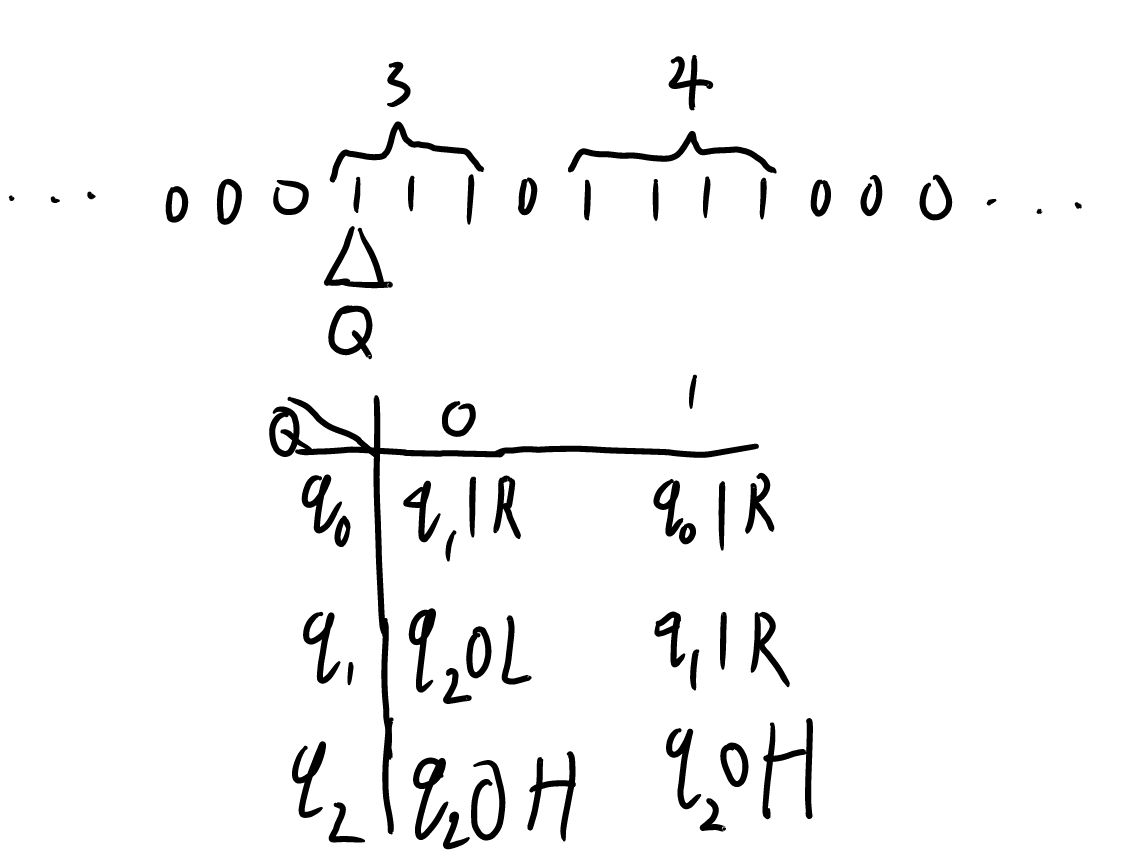 3 4
... 0 0 0 1 1 1 0 1 1 1 1 0 0 0 ...
Q
Q 0 1
q₀ q₁1R q₀1R
q₁ q₂0L q₁1R
q₂ q₂0H q₂0H